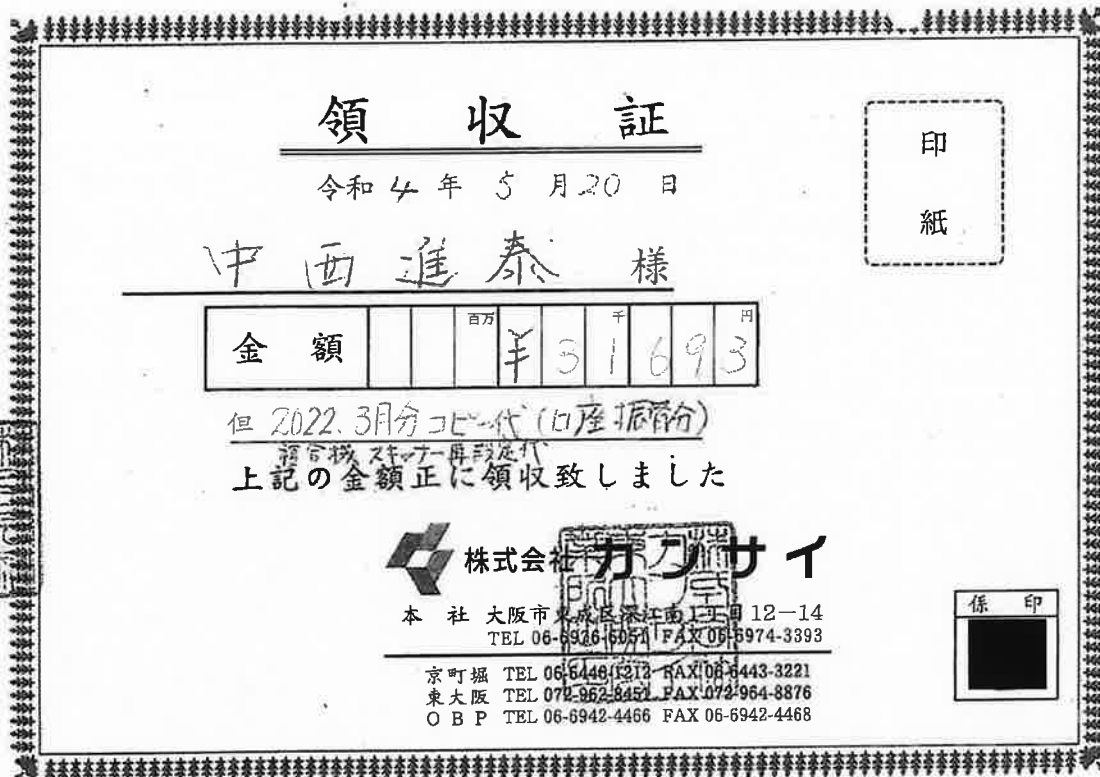 領収証
印紙
令和4年5月20日
中西進泰 様
金額 百万 千 円 ¥31693
但 2022.3月分コピー代(口座振替分)
複合機 スキャナー再設定代
上記の金額正に領収致しました
株式会社 カンサイ
本社 大阪市東成区深江南1丁目12-14
TEL 06-6976-6051 FAX 06-6974-3393
京町堀 TEL 06-6446-1212 FAX 06-6443-3221
東大阪 TEL 072-962-8451 FAX 072-964-8876
OBP TEL 06-6942-4466 FAX 06-6942-4468
係印